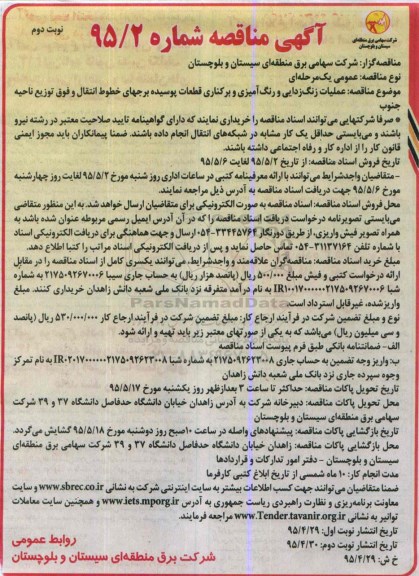 نوبت دوم
آگهی مناقصه شماره ۹۵/۲
شرکت سهامی برق منطقه‌ای
سیستان و بلوچستان
مناقصه‌گزار: شرکت سهامی برق منطقه‌ای سیستان و بلوچستان
نوع مناقصه: عمومی یک‌مرحله‌ای
موضوع مناقصه: عملیات زنگ‌زدایی و رنگ‌آمیزی و برکناری قطعات پوسیده برجهای خطوط انتقال و فوق توزیع ناحیه
جنوب
* صرفا شرکتهایی می‌توانند اسناد مناقصه را خریداری نمایند که دارای گواهینامه تایید صلاحیت معتبر در رشته نیرو
باشند و می‌بایستی حداقل یک کار مشابه در شبکه‌های انتقال انجام داده باشند. ضمنا پیمانکاران باید مجوز ایمنی
قانون کار را از اداره کار و رفاه اجتماعی داشته باشند.
تاریخ فروش اسناد مناقصه: از تاریخ ۹۵/۵/۲ لغایت ۹۵/۵/۶
-متقاضیان واجدشرایط می‌توانند با ارائه معرفینامه کتبی در ساعات اداری روز شنبه مورخ ۹۵/۵/۲ لغایت روز چهارشنبه
مورخ ۹۵/۵/۶ جهت دریافت اسناد مناقصه به آدرس ذیل مراجعه نمایند.
محل فروش اسناد مناقصه: اسناد مناقصه به صورت الکترونیکی برای متقاضیان ارسال خواهدشد. به این منظور متقاضی
می‌بایستی تصویرنامه درخواست دریافت اسناد مناقصه را که در آن آدرس ایمیل رسمی مربوطه عنوان شده باشد به
همراه تصویر فیش واریزی، از طریق دورنگار ۳۳۴۴۵۷۶۴-۰۵۴ ارسال و جهت هماهنگی برای دریافت الکترونیکی اسناد
با شماره تلفن ۳۱۱۳۷۱۶۴-۰۵۴ تماس حاصل نماید و پس از دریافت الکترونیکی اسناد مراتب را کتبا اطلاع دهد.
مبلغ خرید اسناد مناقصه: مناقصه‌گران علاقه‌مند و واجدشرایط، می‌توانند یکسری کامل از اسناد مناقصه را در مقابل
ارائه درخواست کتبی و فیش مبلغ ۵۰۰/۰۰۰ ریال (پانصد هزار ریال) به حساب جاری سیبا ۲۱۷۵۰۹۲۶۷۰۰۰۶ به شماره
شبا به نام درآمد متفرقه نزد بانک ملی شعبه دانش زاهدان خریداری کنند. مبلغ
واریزشده، غیرقابل استرداد است.
نوع و مبلغ تضمین شرکت در فرآیند ارجاع کار: مبلغ تضمین شرکت در فرآیند ارجاع کار ۵۳۰/۰۰۰/۰۰۰ ریال (پانصد
و سی میلیون ریال) می‌باشد که به یکی از صورتهای معتبر زیر باید تهیه و ارائه شود.
الف- ضمانتنامه بانکی طبق فرم پیوست اسناد مناقصه
ب: واریز وجه تضمین به حساب جاری ۲۱۷۵۰۹۲۶۲۳۰۰۸ به شماره شبا به نام تمرکز
وجوه سپرده جاری نزد بانک ملی شعبه دانش زاهدان
تاریخ تحویل پاکات مناقصه: حداکثر تا ساعت ۳ بعدازظهر روز یکشنبه مورخ ۹۵/۵/۱۷
محل تحویل پاکات مناقصه: دبیرخانه شرکت به آدرس زاهدان خیابان دانشگاه حدفاصل دانشگاه ۳۷ و ۳۹ شرکت
سهامی برق منطقه‌ای سیستان و بلوچستان
تاریخ بازگشایی پاکات مناقصه: پیشنهادهای واصله در ساعت ۱۰صبح روز دوشنبه مورخ ۹۵/۵/۱۸ گشایش می‌گردد.
محل بازگشایی پاکات مناقصه: زاهدان خیابان دانشگاه حدفاصل دانشگاه ۳۷ و ۳۹ شرکت سهامی برق منطقه‌ای
سیستان و بلوچستان - دفتر امور تدارکات و قراردادها
مدت انجام کار: ۱۰ ماه شمسی از تاریخ ابلاغ کتبی کارفرما
ضمنا متقاضیان می‌توانند جهت کسب اطلاعات بیشتر به سایت اینترنتی شرکت به نشانی www.sbrec.co.ir و سایت
معاونت برنامه‌ریزی و نظارت راهبردی ریاست جمهوری به آدرس www.iets.mporg.ir و همچنین سایت معاملات
توانیر به نشانی www.Tender.tavanir.org.ir مراجعه فرمایند.
تاریخ انتشار نوبت اول: ۹۵/۴/۲۹
تاریخ انتشار نوبت دوم: ۹۵/۴/۳۰
خ ش: ۹۵/۴/۲۹
روابط عمومی
شرکت برق منطقه‌ای سیستان و بلوچستان
ParsNamadData